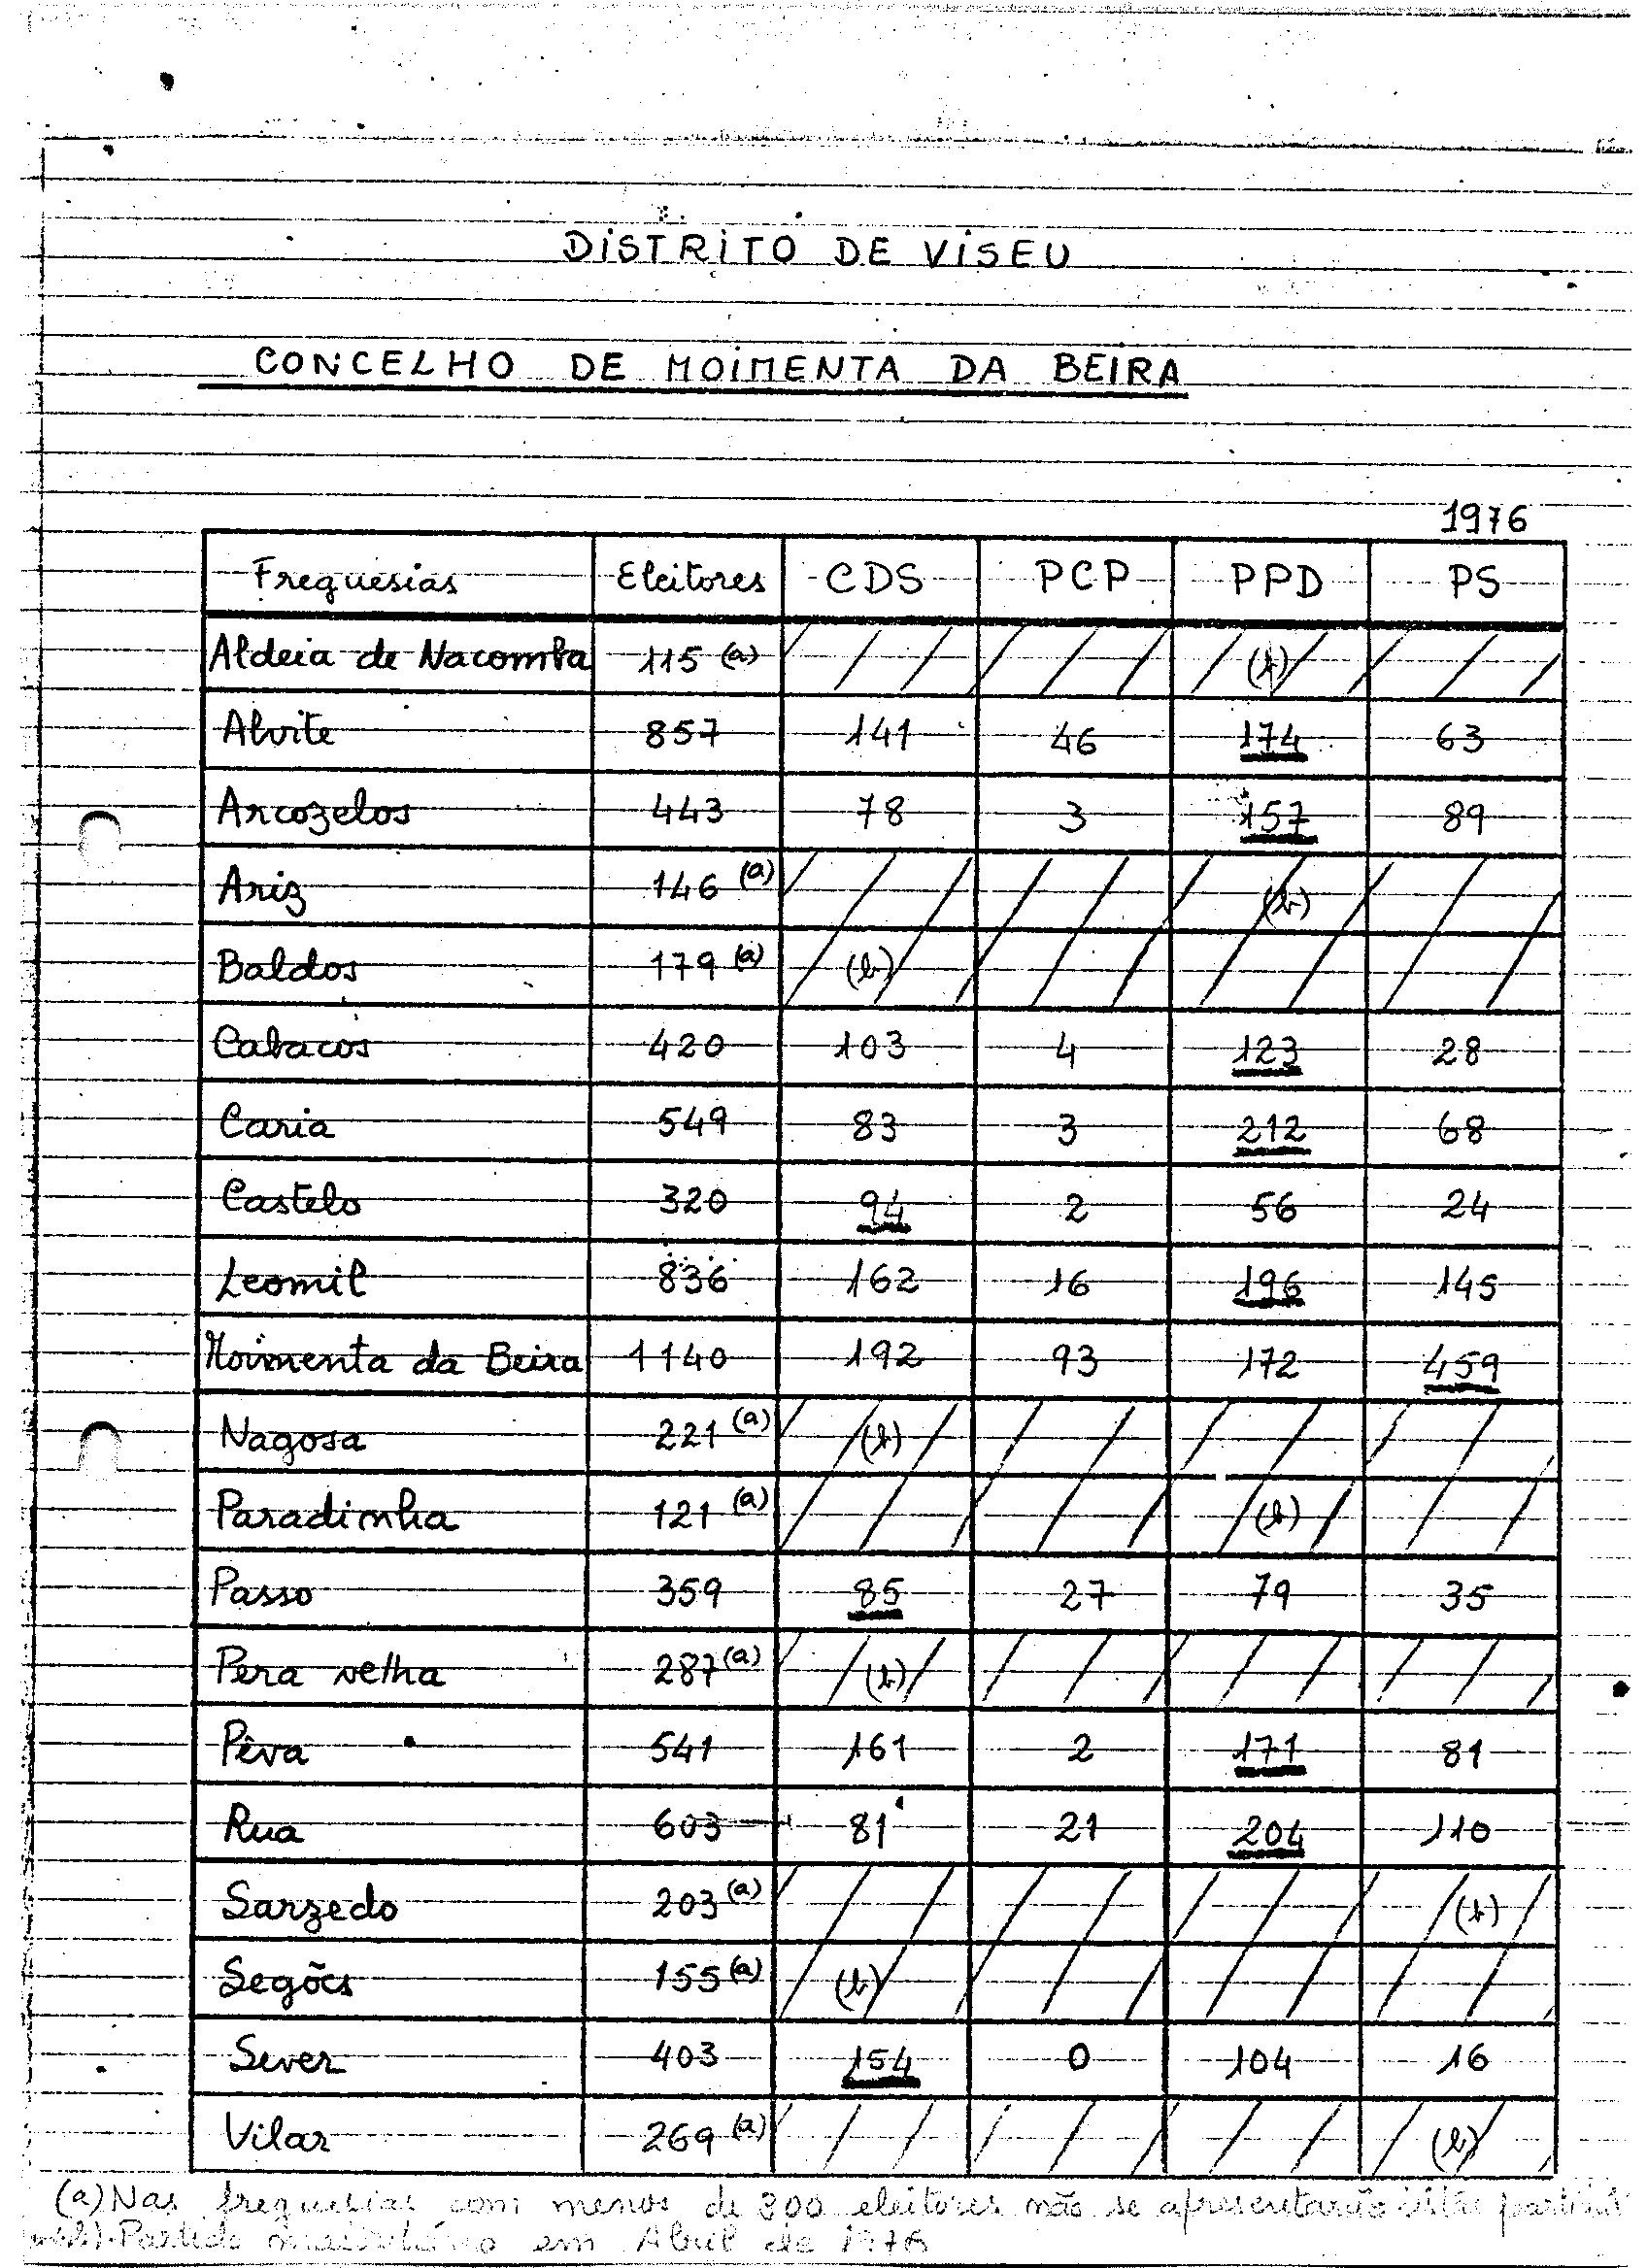 DISTRITO DE VISEU
CONCELHO DE MOIMENTA DA BEIRA
1976
Freguesias Eleitores CDS PCP PPD PS
Aldeia de Nacomba 115 (a) (b)
Alvite 857 141 46 174 63
Arcozelos 443 78 3 157 89
Ariz 146 (a) (b)
Baldos 179 (a) (b)
Cabacos 420 103 4 123 28
Caria 549 83 3 212 68
Castelo 320 94 2 56 24
Leomil 836 162 16 196 145
Moimenta da Beira 1140 192 93 172 459
Nagosa 221 (a) (b)
Paradinha 121 (a) (b)
Passo 359 85 27 79 35
Pera velha 287 (a) (b)
Pêva 541 161 2 171 81
Rua 603 81 21 204 110
Sarzedo 203 (a) (b)
Segões 155 (a) (b)
Sever 403 154 0 104 16
Vilar 269 (a) (b)
(a) Nas freguesias com menos de 300 eleitores não se apresentarão listas
Partido maioritário em Abril de 1976